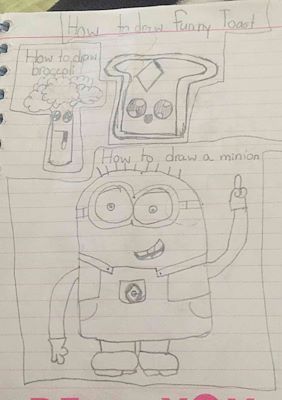 How to draw Funny Toast
How to draw
broccoli
How to draw a minion